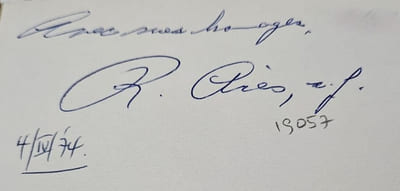 Avec mes hommages,
R. Ariès, s.j.
19057
4/IV/'74.